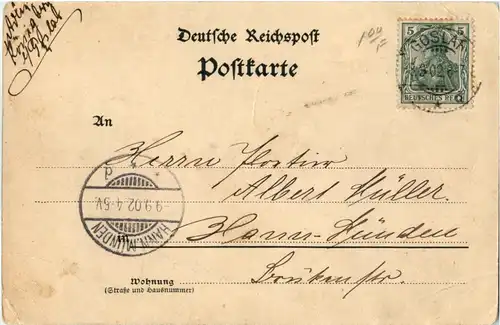 Deutsche Reichspost
Postkarte
100
GOSLAR
5 5
DEUTSCHES REICH
An
Herrn Postier
Albert Müller.
Hann.-Münden
in
HANN. MÜNDEN
9.9.02.4-5V.
Wohnung
(Straße und Hausnummer)